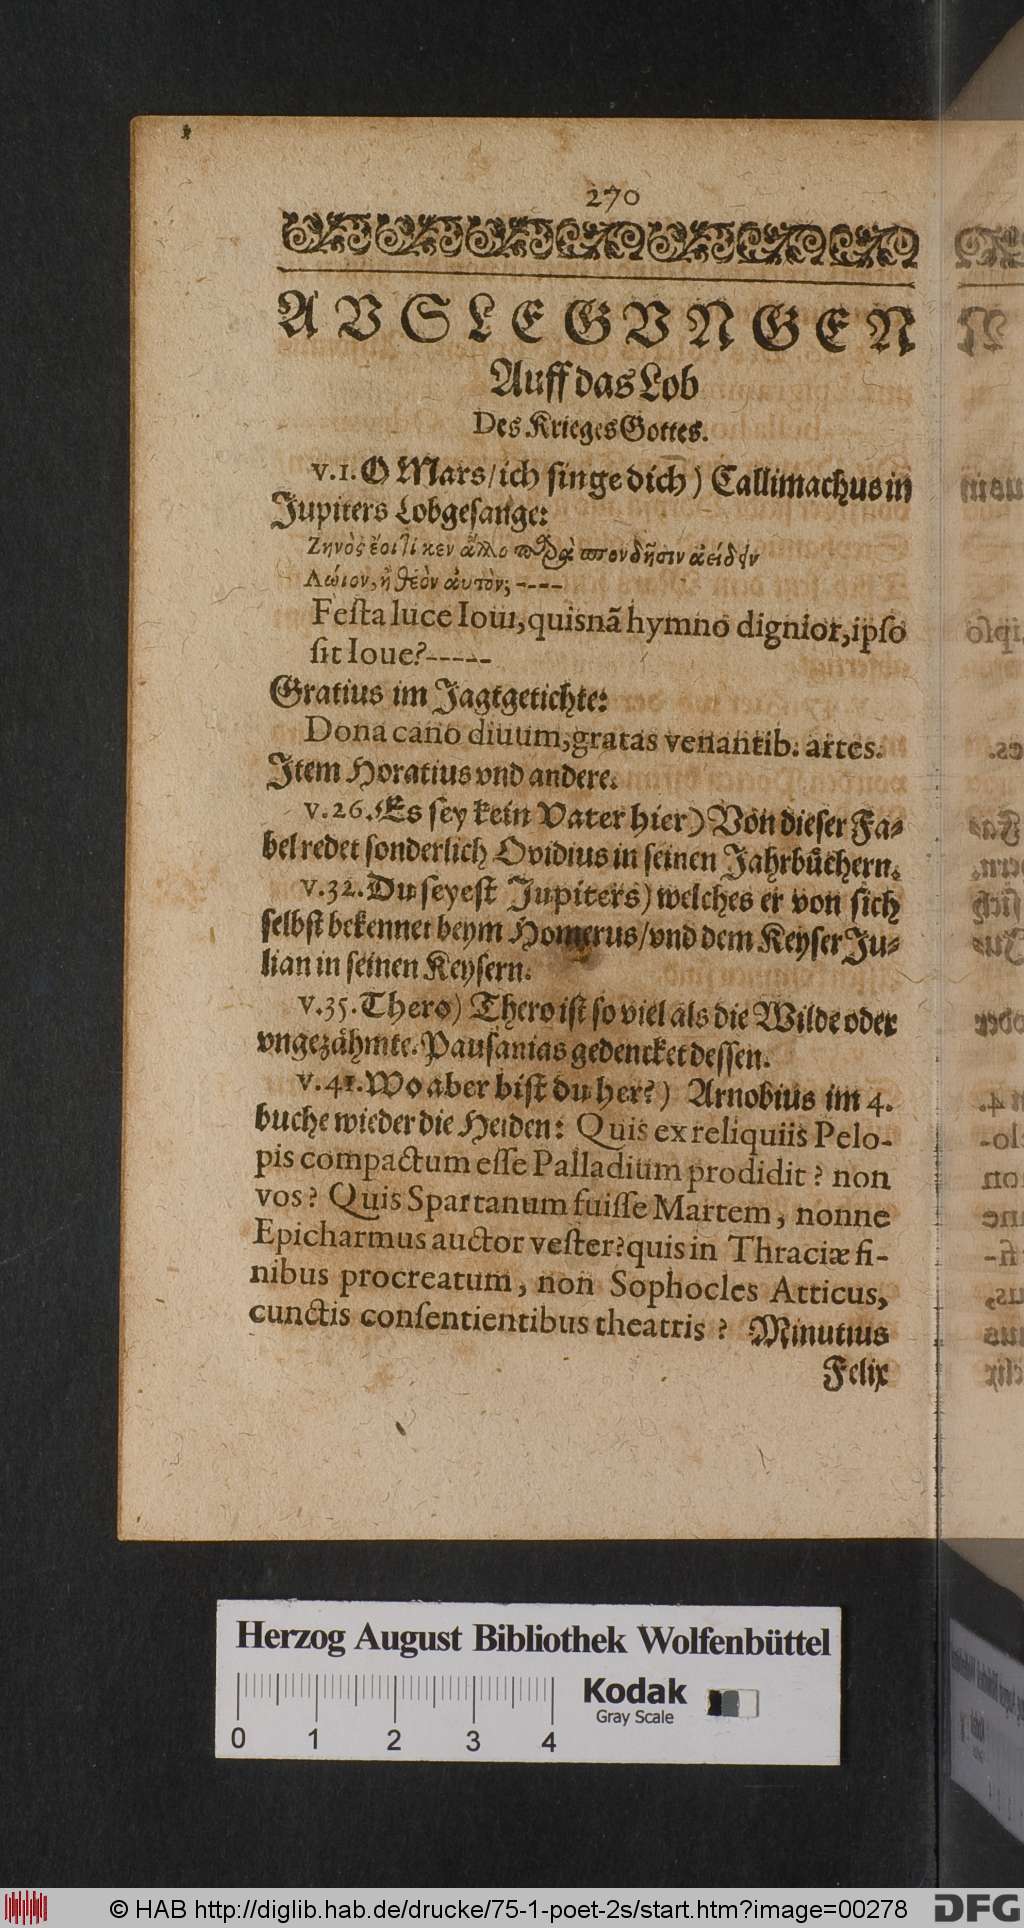 270
AVSLEGVNGEN
Auff das Lob
Des Krieges Gottes.
v.1. O Mars/ ich singe dich) Callimachus in
Jupiters Lobgesange:
Ζηνὸς ἔοι τί κεν ἄλλο παρὰ σπονδῇσιν ἀείδειν
Λώιον, ἢ θεὸν αὐτὸν; ----
Festa luce Ioui, quisnã hymno dignior, ipso
sit Ioue?-----
Gratius im Jagtgetichte:
Dona cano diuum, gratas venantib. artes.
Item Horatius vnd andere.
v.26. Es sey kein Vater hier) Von dieser Fa-
bel redet sonderlich Ovidius in seinen Jahrbüchern.
v.32. Du seyest Jupiters) welches er von sich
selbst bekennet beym Homerus/ vnd dem Keyser Ju-
lian in seinen Keysern.
v.35. Thero) Thero ist so viel als die Wilde oder
vngezähmte. Pausanias gedencket dessen.
v.41. Wo aber bist du her?) Arnobius im 4.
buche wieder die Heiden: Quis ex reliquiis Pelo-
pis compactum esse Palladium prodidit? non
vos? Quis Spartanum fuisse Martem, nonne
Epicharmus auctor vester? quis in Thraciæ fi-
nibus procreatum, non Sophocles Atticus,
cunctis consentientibus theatris? Minutius
Felix
Herzog August Bibliothek Wolfenbüttel
0 1 2 3 4
Kodak
Gray Scale
© HAB http://diglib.hab.de/drucke/75-1-poet-2s/start.htm?image=00278
DFG